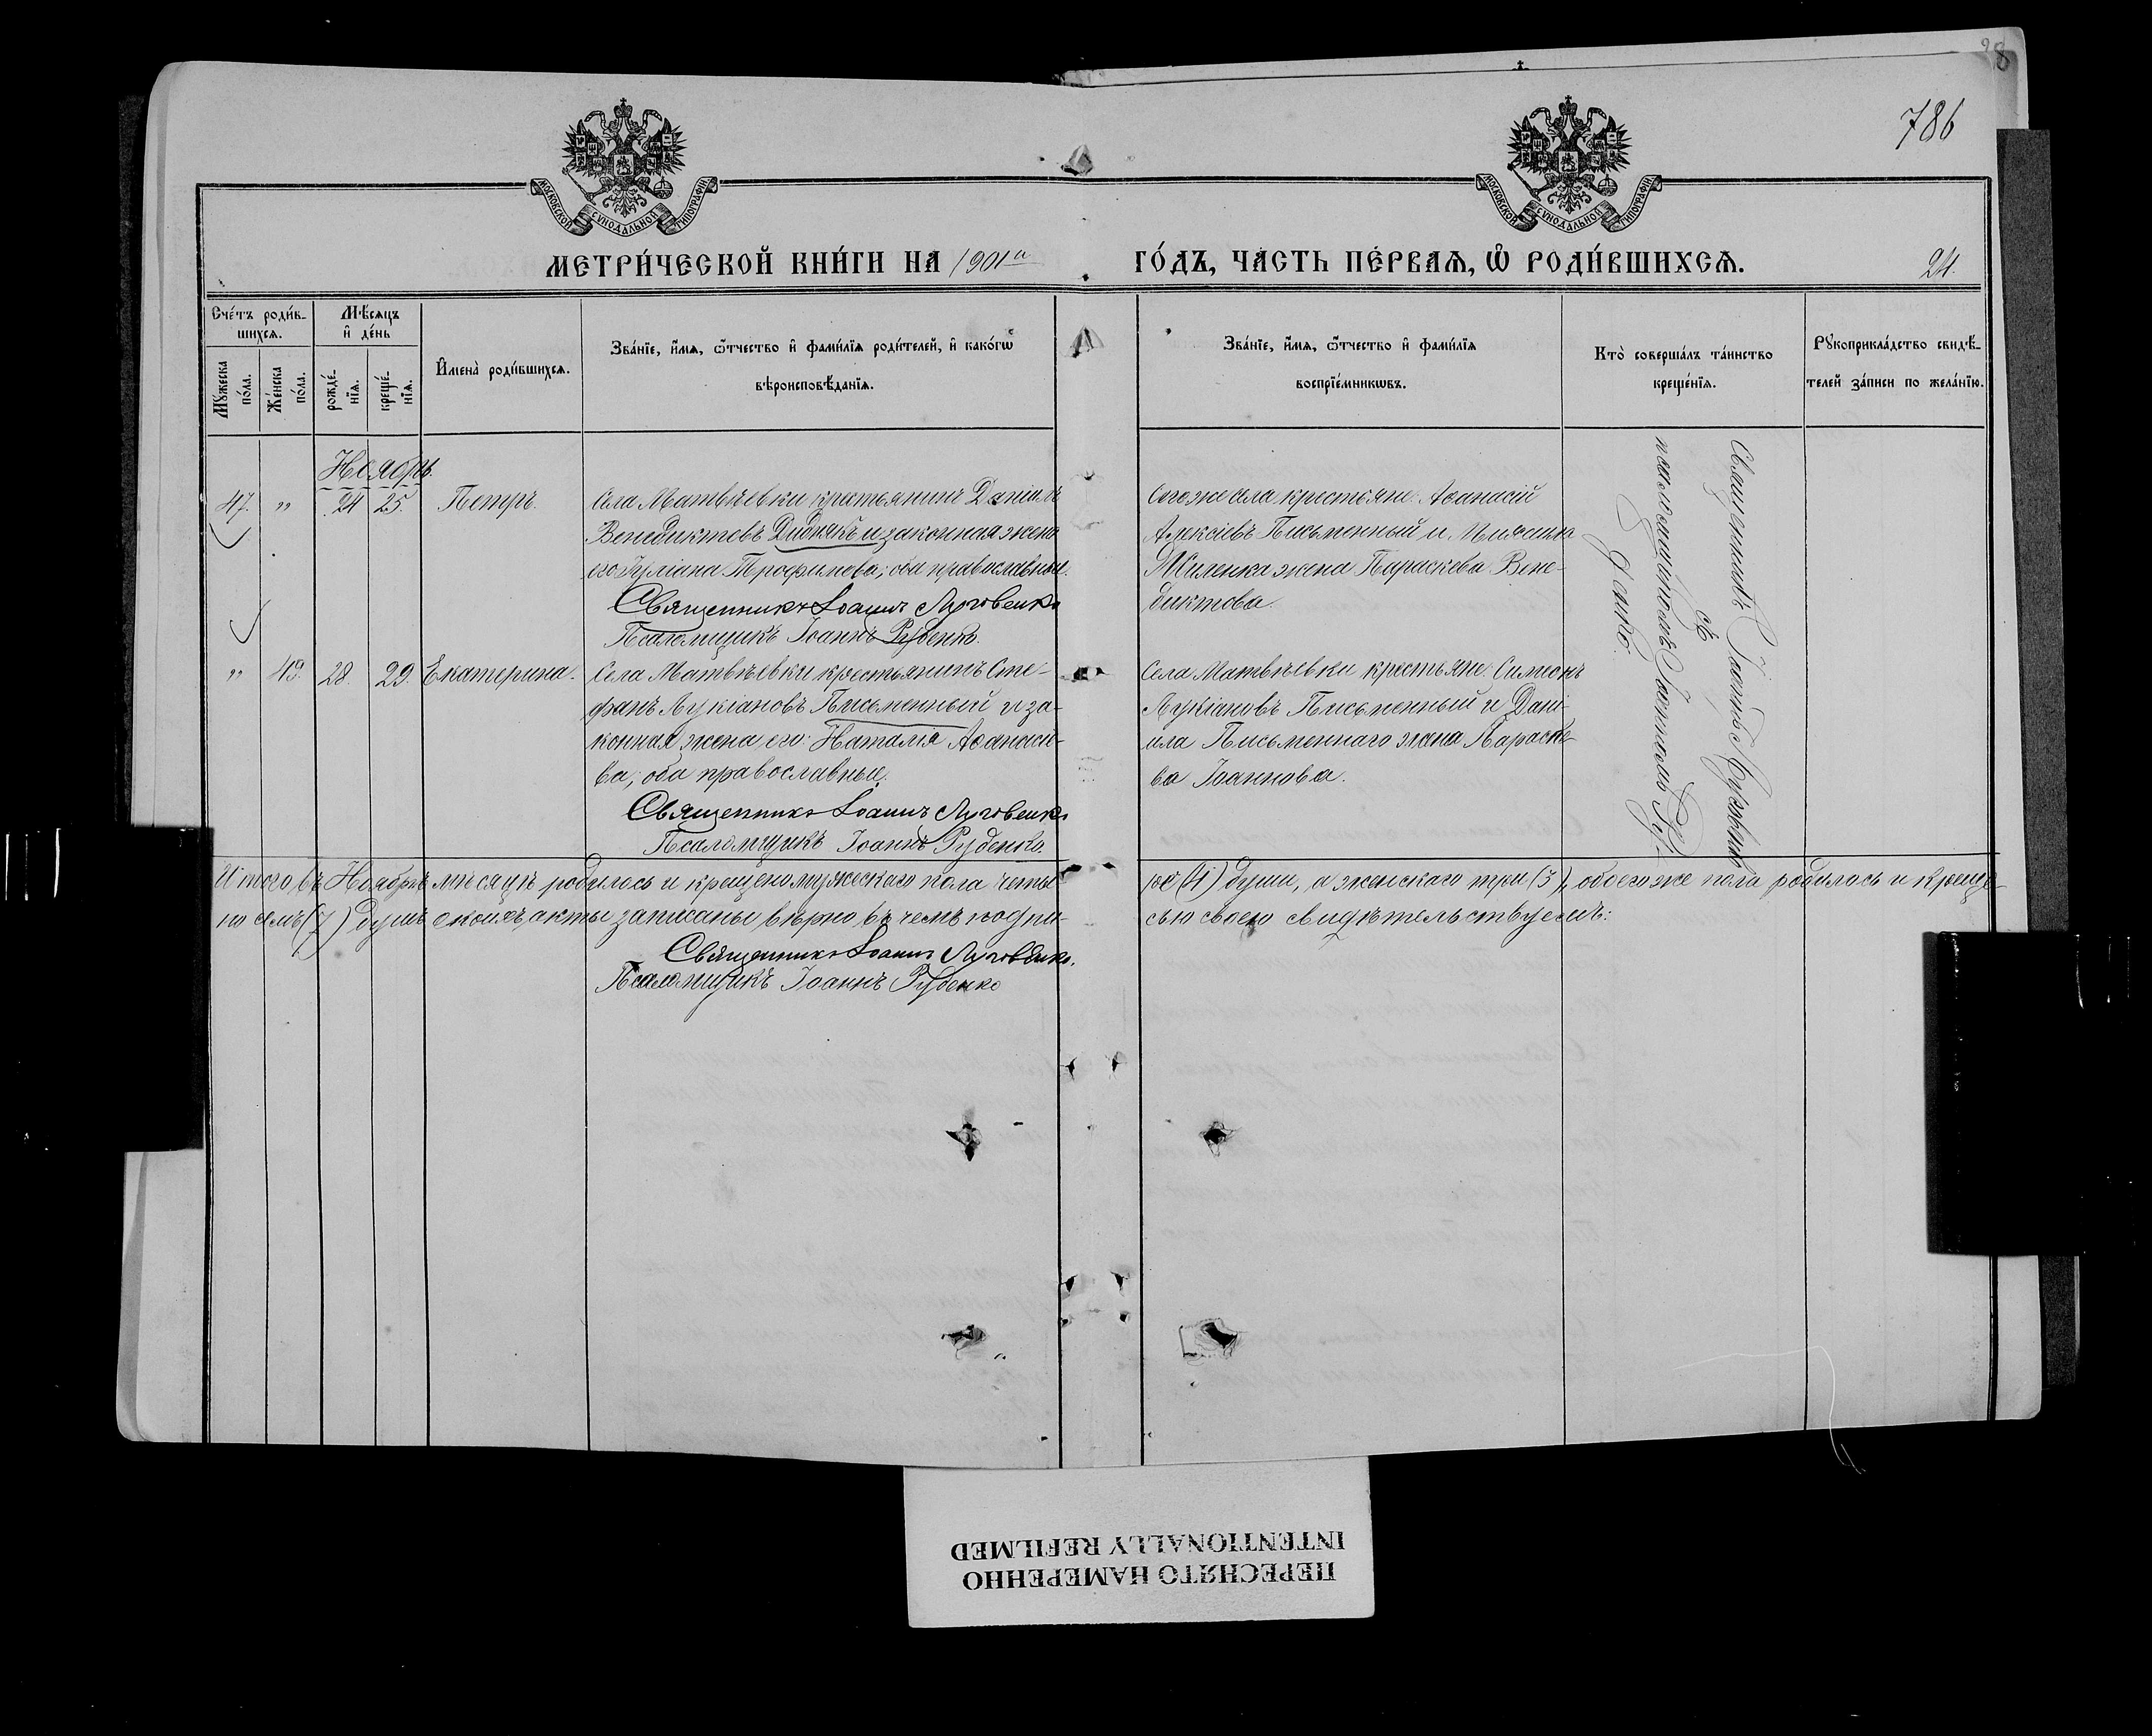 28
786
МОСКОВСКОЙ СУНОДАЛЬНОЙ ТИПОГРАФІИ
МОСКОВСКОЙ СУНОДАЛЬНОЙ ТИПОГРАФІИ
МЕТРИ́ЧЕСКОЙ КНИ́ГИ НА 1901й ГО́ДЪ, ЧА́СТЬ ПЕ́РВАЯ, Ѡ РОДИ́ВШИХСЯ. 24.
Сче́тъ роди́в-
шихся.
Мѣсяцъ
и де́нь
Му́жеска по́ла.
Же́нска по́ла.
рожде́-
нїя.
креще́-
нїя.
Имена̀ роди́вшихся.
Зва́нїе, и́мя, ѻ҆́тчество и фами́лїя роди́телей, и како́гѡ
вѣроисповѣ́данїя.
Зва́нїе, и́мя, ѻ҆́тчество и фами́лїя
воспрїе́мникѡвъ.
Кто̀ соверша́лъ та́инство
креще́нїя.
Рꙋкоприкла́дство свидѣ́-
телей за́писи по жела́нїю.
Ноябрь.
47. „ 24 25. Петръ.
Села Матвѣевки крестьянинъ Даніилъ
Венедиктовъ Дидныкъ и законная жена
его Іуліана Трофимова; оба православные.
Священникъ Іоаннъ Луговенко
Псаломщикъ Іоаннъ Руденко.
Тогоже села крестьяне: Аѳанасій
Алексіевъ Письменный и
Жиленка жена Параскева Вене-
диктова.
Священникъ Іоаннъ
съ
псаломщикомъ Іоанномъ Ру-
денко.
„ 49. 28. 29. Екатерина.
Села Матвѣевки крестьянинъ Сте-
фанъ Лукіановъ Письменный и за-
конная жена его: Наталія Аѳанасіе-
ва; оба православные.
Священникъ Іоаннъ Луговенко
Псаломщикъ Іоаннъ Руденко.
Села Матвѣевки крестьяне: Симеонъ
Лукіановъ Письменный и Дані-
ила Письменнаго жена Параске-
ва Іоаннова.
Итого въ Ноябрѣ мѣсяцѣ родилось и крещено мужескаго пола четы-
ре (4) души, а женскаго три (3), обоего же пола родилось и креще-
но семь (7) душъ о коихъ акты записаны вѣрно въ чемъ подпи-
сью своею свидѣтельствуемъ:
Священникъ Іоаннъ Луговенко.
Псаломщикъ Іоаннъ Руденко
ПЕРЕСНЯТО НАМЕРЕННО
INTENTIONALLY REFILMED